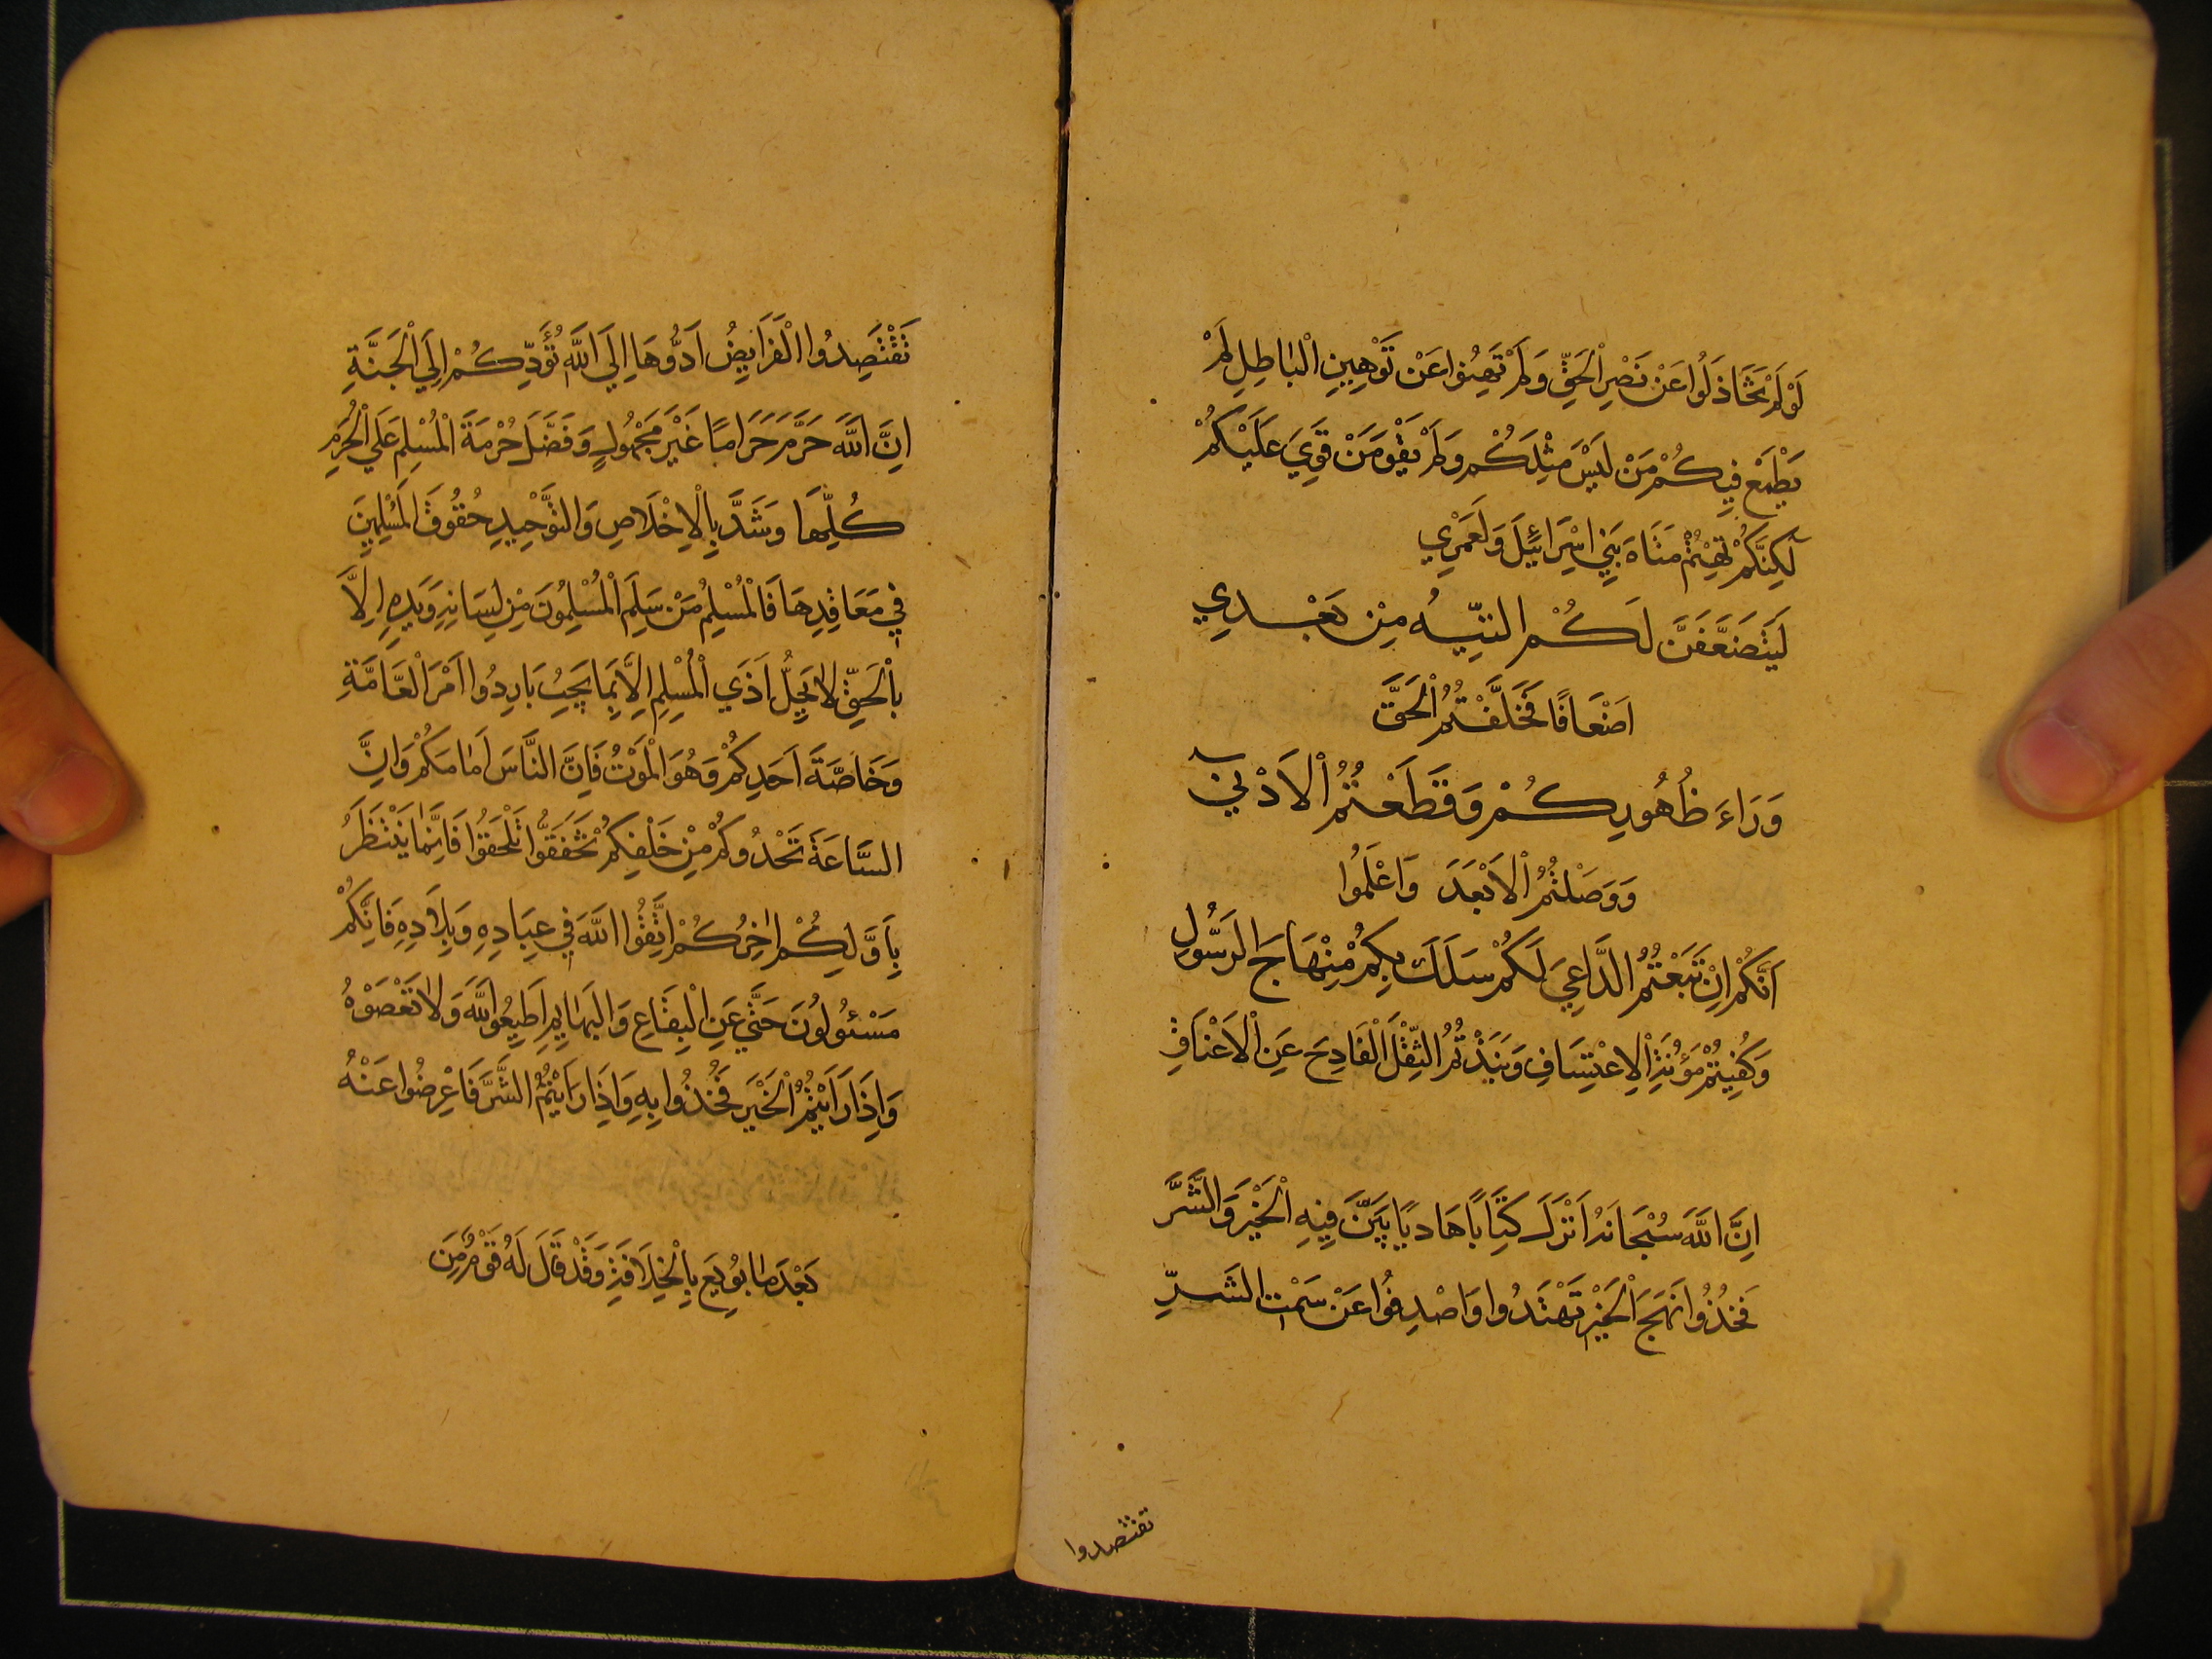 لَوْ لَمْ تَخَاذَلُوا عَنْ نَصْرِ الْحَقِّ وَلَمْ تَهِنُوا عَنْ تَوْهِينِ الْبَاطِلِ لَمْ
يَطْمَعْ فِيكُمْ مَنْ لَيْسَ مِثْلَكُمْ وَلَمْ يَقْوَ مَنْ قَوِيَ عَلَيْكُمْ
لَكِنَّكُمْ تِهْتُمْ مَتَاهَ بَنِي اِسْرَائِيلَ وَلَعَمْرِي
لَيُضَعَّفَنَّ لَكُمُ التِّيهُ مِنْ بَعْدِي
اَضْعَافًا فَخَلَّفْتُمُ الْحَقَّ
وَرَاءَ ظُهُورِكُمْ وَقَطَعْتُمُ الْاَدْنَي
وَوَصَلْتُمُ الْاَبْعَدَ وَاعْلَمُوا
اَنَّكُمْ اِنْ تَبَعْتُمُ الدَّاعِيَ لَكُمْ سَلَكَ بِكُمْ مِنْهَاجَ الرَسُّولِ
وَكُفِيتُمْ مَؤُنَةَ الْاِعْتِسَافِ وَنَبَذْتُمُ الثِّقْلَ الْفَادِحَ عَنِ الْاَعْنَاقِ
اِنَّ اللّٰهَ سُبْحَانَهُ اَنْزَلَ كِتَابًا هَادِيًا بَيَّنَ فِيهِ الْخَيْرَ وَالشَّرَّ
فَخُذُوا نَهَجَ الْخَيْرِ تَهْتَدُوا وَاصْدِفُوا عَنْ سَمْتِ الشَّرِّ
تقتصدوا
تَقْتَصِدُوا الْفَرَايِضُ اَدُّوهَا اِلَي اللّٰهِ تُؤَدِّكُمْ اِلَي الْجَنَّةِ
اِنَّ اللّٰهَ حَرَّمَ حَرَامًا غَيْرَ مَجْهُولٍ وَفَضَّلَ حُرْمَةَ الْمُسْلِمِ عَلَي الْحُرَمِ
كُلِّهَا وَشَدَّ بِالْاِخْلَاصِ وَالتَّوْحِيدِ حُقُوقَ الْمُسْلِمِينَ
فِي مَعَاقِدِهَا فَالْمُسْلِمُ مَنْ سَلِمَ الْمُسْلِمُونَ مِنْ لِسَانِهِ وَيَدِهِ اِلَّا
بِالْحَقِّ لَا يَحِلُّ اَذَي الْمُسْلِمِ اِلَّا بِمَا يَجِبُ بَادِرُوا اَمْرَ الْعَامَّةِ
وَخَاصَّةَ اَحَدِكُمْ وَهُوَ الْمَوْتُ فَاِنَّ النَّاسَ اَمَامَكُمْ وَاِنَّ
السَّاعَةَ تَحْدُوكُمْ مِنْ خَلْفِكُمْ تَخَفَّفُوا تَلْحَقُوا فَاِنَّمَا يُنْتَظَرُ
بِاَوَّلِكُمْ اٰخِرُكُمْ اِتَّقُوا اللّٰهَ فِي عِبَادِهِ وَبِلَادِهِ فَاِنَّكُمْ
مَسْئُولُونَ حَتَّي عَنِ الْبِقَاعِ وَالْبَهَايِمِ اَطِيعُوا اللّٰهَ وَلَا تَعْصَوْهُ
وَاِذَا رَاَيْتُمُ الْخَيْرَ فَخُذُوا بِهِ وَاِذَا رَاَيْتُمُ الشَّرَّ فَاعْرِضُوا عَنْهُ
بَعْدَ مَا بُويِعَ بِالْخِلَافَةِ وَقَدْ قَالَ لَهُ قَوْمٌ مِنَ